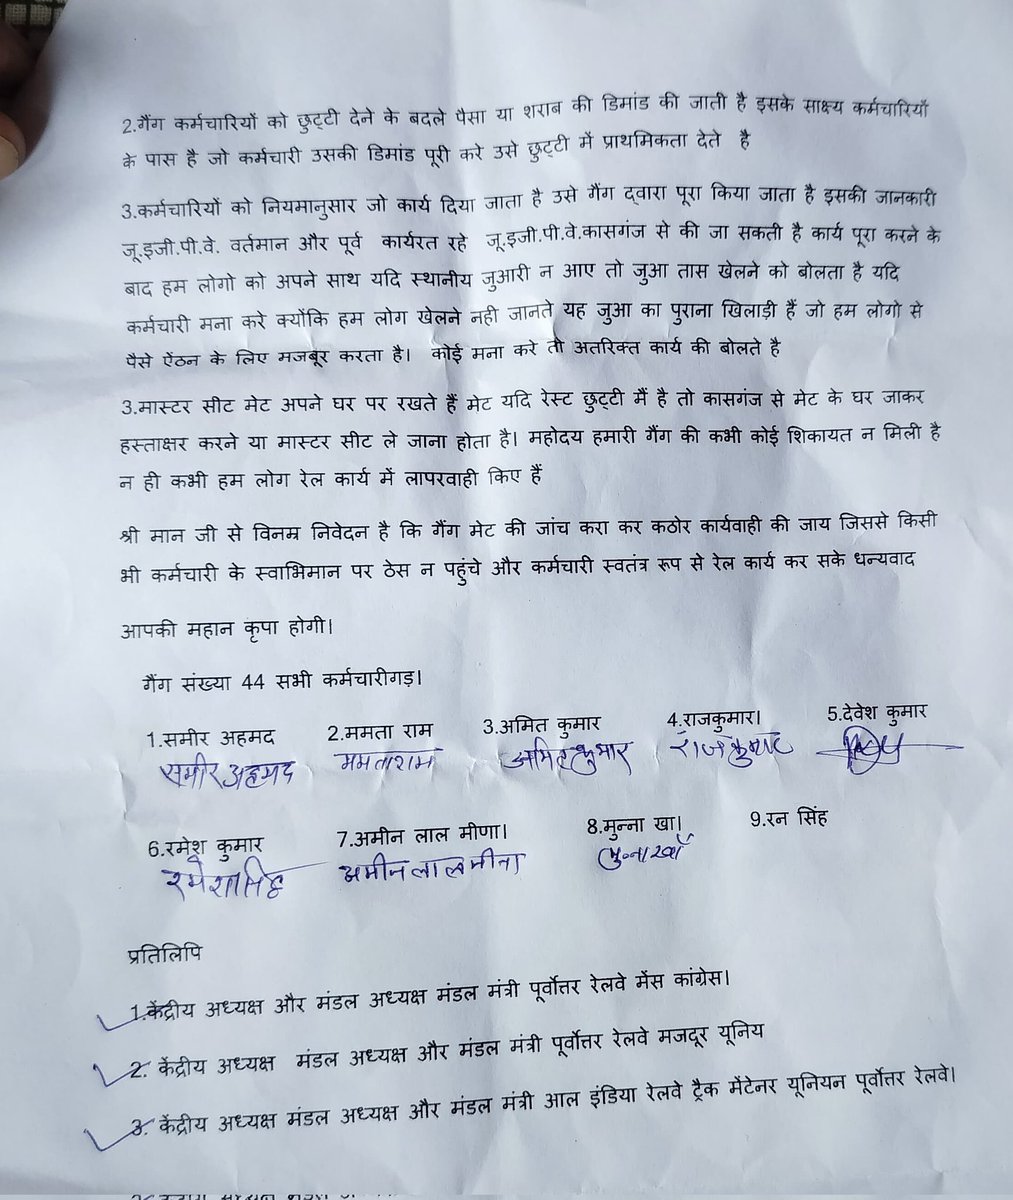 2.गैंग कर्मचारियों को छुट्टी देने के बदले पैसा या शराब की डिमांड की जाती है इसके साक्ष्य कर्मचारियों
के पास है जो कर्मचारी उसकी डिमांड पूरी करे उसे छुट्टी में प्राथमिकता देते है
3.कर्मचारियों को नियमानुसार जो कार्य दिया जाता है उसे गैंग द्वारा पूरा किया जाता है इसकी जानकारी
जू.इजी.पी.वे. वर्तमान और पूर्व कार्यरत रहे जू.इजी.पी.वे.कासगंज से की जा सकती है कार्य पूरा करने के
बाद हम लोगो को अपने साथ यदि स्थानीय जुआरी न आए तो जुआ तास खेलने को बोलता है यदि
कर्मचारी मना करे क्योंकि हम लोग खेलने नही जानते यह जुआ का पुराना खिलाड़ी हैं जो हम लोगो से
पैसे ऐंठन के लिए मजबूर करता है। कोई मना करे तो अतरिक्त कार्य की बोलते है
3.मास्टर सीट मेट अपने घर पर रखते हैं मेट यदि रेस्ट छुट्टी मैं है तो कासगंज से मेट के घर जाकर
हस्ताक्षर करने या मास्टर सीट ले जाना होता है। महोदय हमारी गैंग की कभी कोई शिकायत न मिली है
न ही कभी हम लोग रेल कार्य में लापरवाही किए हैं
श्री मान जी से विनम्र निवेदन है कि गैंग मेट की जांच करा कर कठोर कार्यवाही की जाय जिससे किसी
भी कर्मचारी के स्वाभिमान पर ठेस न पहुंचे और कर्मचारी स्वतंत्र रूप से रेल कार्य कर सके धन्यवाद
आपकी महान कृपा होगी।
गैंग संख्या 44 सभी कर्मचारीगड़।
1.समीर अहमद 2.ममता राम 3.अमित कुमार 4.राजकुमार। 5.देवेश कुमार
समीर अहमद ममताराम अमित कुमार राजकुमार
6.रमेश कुमार 7.अमीन लाल मीणा। 8.मुन्ना खा। 9.रन सिंह
रमेश सिंह अमीन लाल मीना मुन्ना खाँ
प्रतिलिपि
1.केंद्रीय अध्यक्ष और मंडल अध्यक्ष मंडल मंत्री पूर्वोत्तर रेलवे मेंस कांग्रेस।
2. केंद्रीय अध्यक्ष मंडल अध्यक्ष और मंडल मंत्री पूर्वोत्तर रेलवे मजदूर यूनिय
3. केंद्रीय अध्यक्ष मंडल अध्यक्ष और मंडल मंत्री आल इंडिया रेलवे ट्रैक मेंटेनर यूनियन पूर्वोत्तर रेलवे।